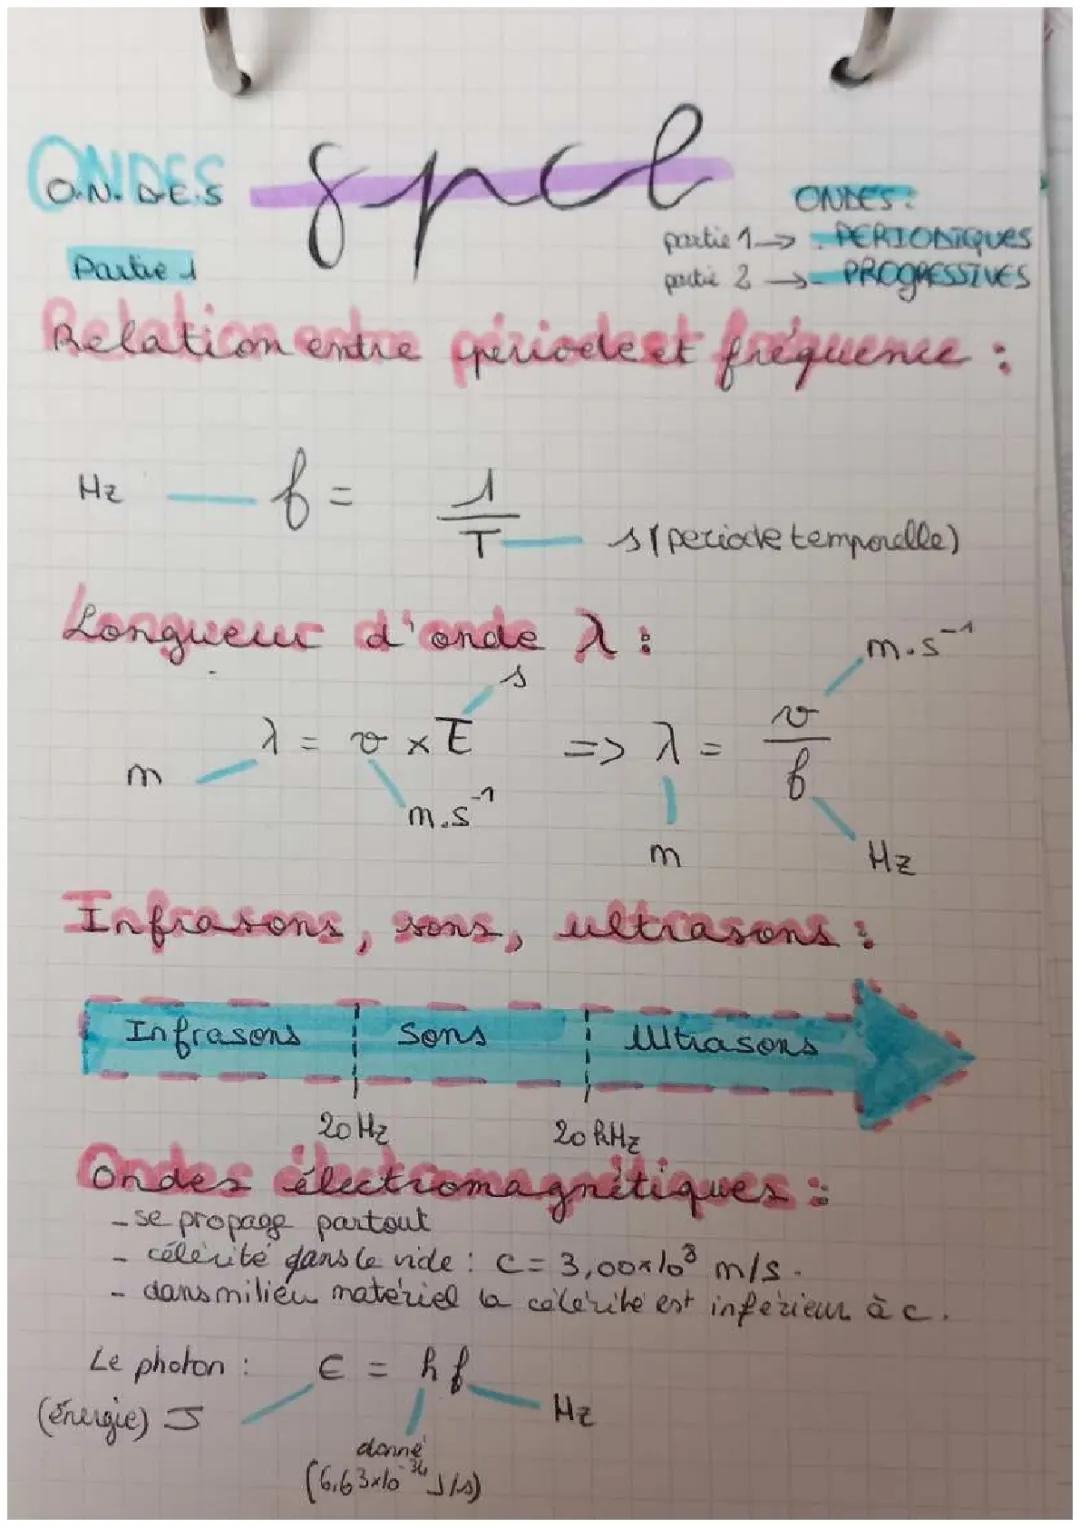 ONDES
O.N.D.E.S
spcl
ONDES :
partie 1 → - PERIODIQUES
partie 2 → - PROGRESSIVES
Partie 1
Relation entre période et fréquence :
Hz — f = 1/T — s (periode temporelle)
Longueur d'onde λ :
m.s⁻¹
s
λ = v × T => λ = v/f
m
m.s⁻¹
m
Hz
Infrasons, sons, ultrasons :
Infrasons Sons Ultrasons
20 Hz 20 kHz
Ondes électromagnétiques :
- se propage partout
- célérité dans le vide : c = 3,00×10⁸ m/s.
- dans milieu matériel la célérité est inférieur à c.
Le photon : E = h f
(énergie) J
Hz
donné
(6,63×10⁻³⁴ J/s)